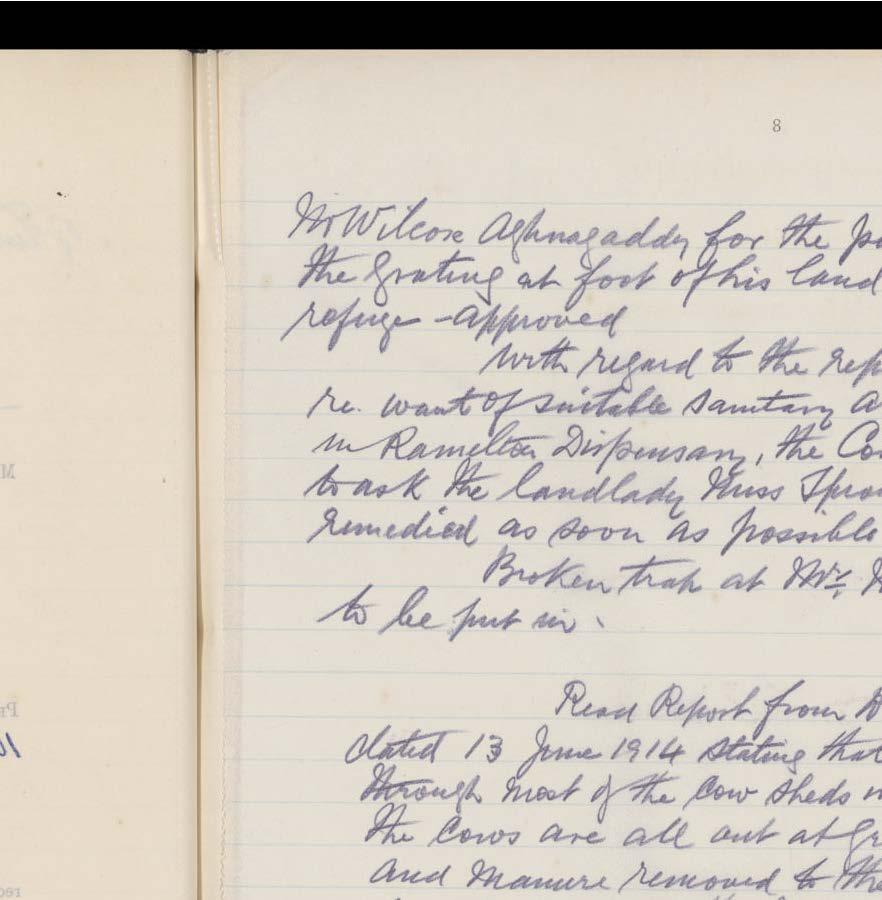 8
Mr Wilcox Aghnagaddy for the
the grating at foot of his land
refuge - approved
with regard to the rep
re. want of suitable sanitary a
in Ramelton Dispensary, the Co
to ask the landlady Miss Spro
remedied as soon as possible
Broken trap at Mrs.
to be put in.
Read Report from D
dated 13 June 1914 stating that
through most of the cow sheds
the cows are all out at gr
and manure removed to the